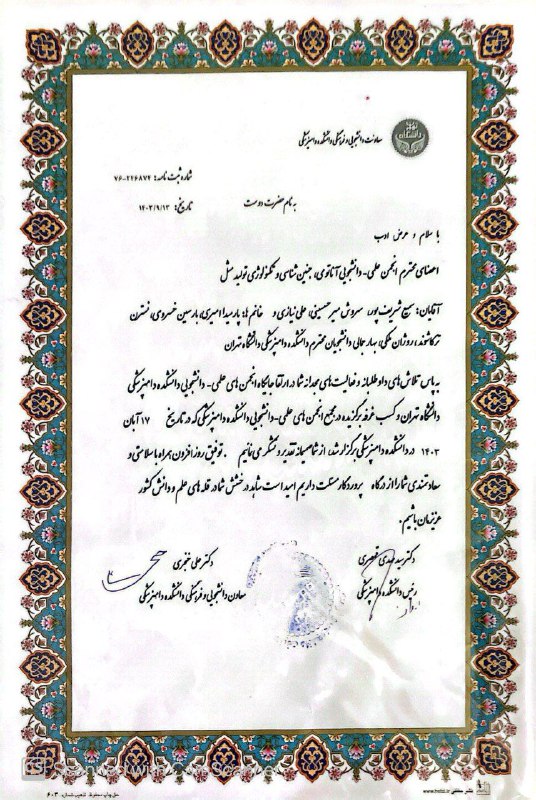 معاونت دانشجویی و فرهنگی دانشکده دامپزشکی
شماره ثبت نامه: ۷۶-۲۴۶۸۷۴
تاریخ: ۱۴۰۳/۹/۱۳
به نام حضرت دوست
با سلام و عرض ادب
اعضای محترم انجمن علمی-دانشجویی آناتومی، جنین شناسی و تکنولوژی تولید مثل
آقایان: مسیح شریف پور، سروش میرحسینی، علی نیازی و خانم ها: پارمیدا امیری، پارمین خسروی، نسترن
ترکاشوند، روژان ملکی، بهار جمالی دانشجویان محترم دانشکده دامپزشکی دانشگاه تهران
به پاس تلاش های داوطلبانه و فعالیت های مجدانه شما در ارتقا جایگاه انجمن های علمی-دانشجویی دانشکده دامپزشکی
دانشگاه تهران و کسب غرفه برگزیده در مجمع انجمن های علمی-دانشجویی دامپزشکی که در تاریخ ۱۷ آبان
۱۴۰۳ در دانشکده دامپزشکی برگزار شد، از شما صمیمانه تقدیر و تشکر می نمائیم. توفیق روز افزون همراه با سلامتی و
سعادتمندی شما را از درگاه پروردگار مسئلت داریم امید است شاهد درخشش شما در قله های علم و دانش کشور
عزیزمان باشیم.
دکتر علی خنجری
معاون دانشجویی و فرهنگی دانشکده دامپزشکی
رئیس دانشکده دامپزشکی
Scanned with CamScanner
www.hedsi.ir